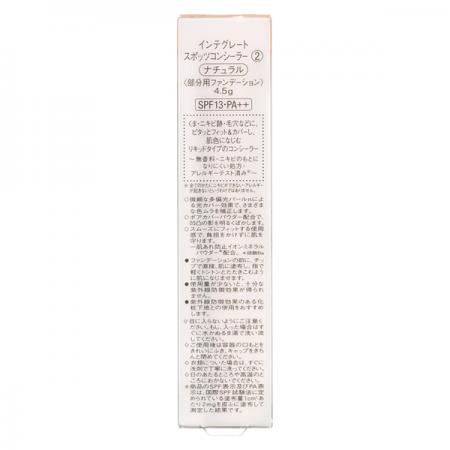 インテグレート
スポッツコンシーラー ②
ナチュラル
〈部分用ファンデーション〉
4.5g
SPF13・PA++
くま・ニキビ跡・毛穴などに、
ピタッとフィット&カバーし、
肌色になじむ
リキッドタイプのコンシーラー
〜無香料・ニキビのもとに
なりにくい処方・
アレルギーテスト済み※〜
※全てのかたにニキビができない・アレルギー
が起きないというわけではありません。
○微細な多偏光パールnによ
る光カバー効果で、さまざま
な色ムラを補正します。
○ポアカバーパウダー配合で、
凹凸の影を明るくぼかします。
○スムーズにフィットする使用
感で、負担をかけずに肌を
守ります。
―肌あれ防止イオンミネラル
パウダー*配合。 *硫酸Ba
●ファンデーションの前に、チッ
プで直接、肌に塗布し、指で
軽くトントンとたたきこむよう
に肌になじませます。
●使用量が少ないと、十分な
紫外線防御効果が得られ
ません。
●紫外線防御効果のある化
粧下地との併用をおすすめ
します。
◇目に入らないようにご注意く
ださい。もし、入った場合はす
ぐに水かぬるま湯で洗い流
してください。
◇ご使用後は容器の口もとを
きれいにふき、キャップをきち
んと閉めてください。
◇衣類についた場合は、すぐに
洗剤で丁寧に洗ってください。
◇日のあたるところや高温のと
ころにおかないでください。
※商品のSPF表示及びPA表
示は、国際SPF試験法に定
められている塗布量1cm²あ
たり2mgを皮ふに塗布して
測定した結果です。